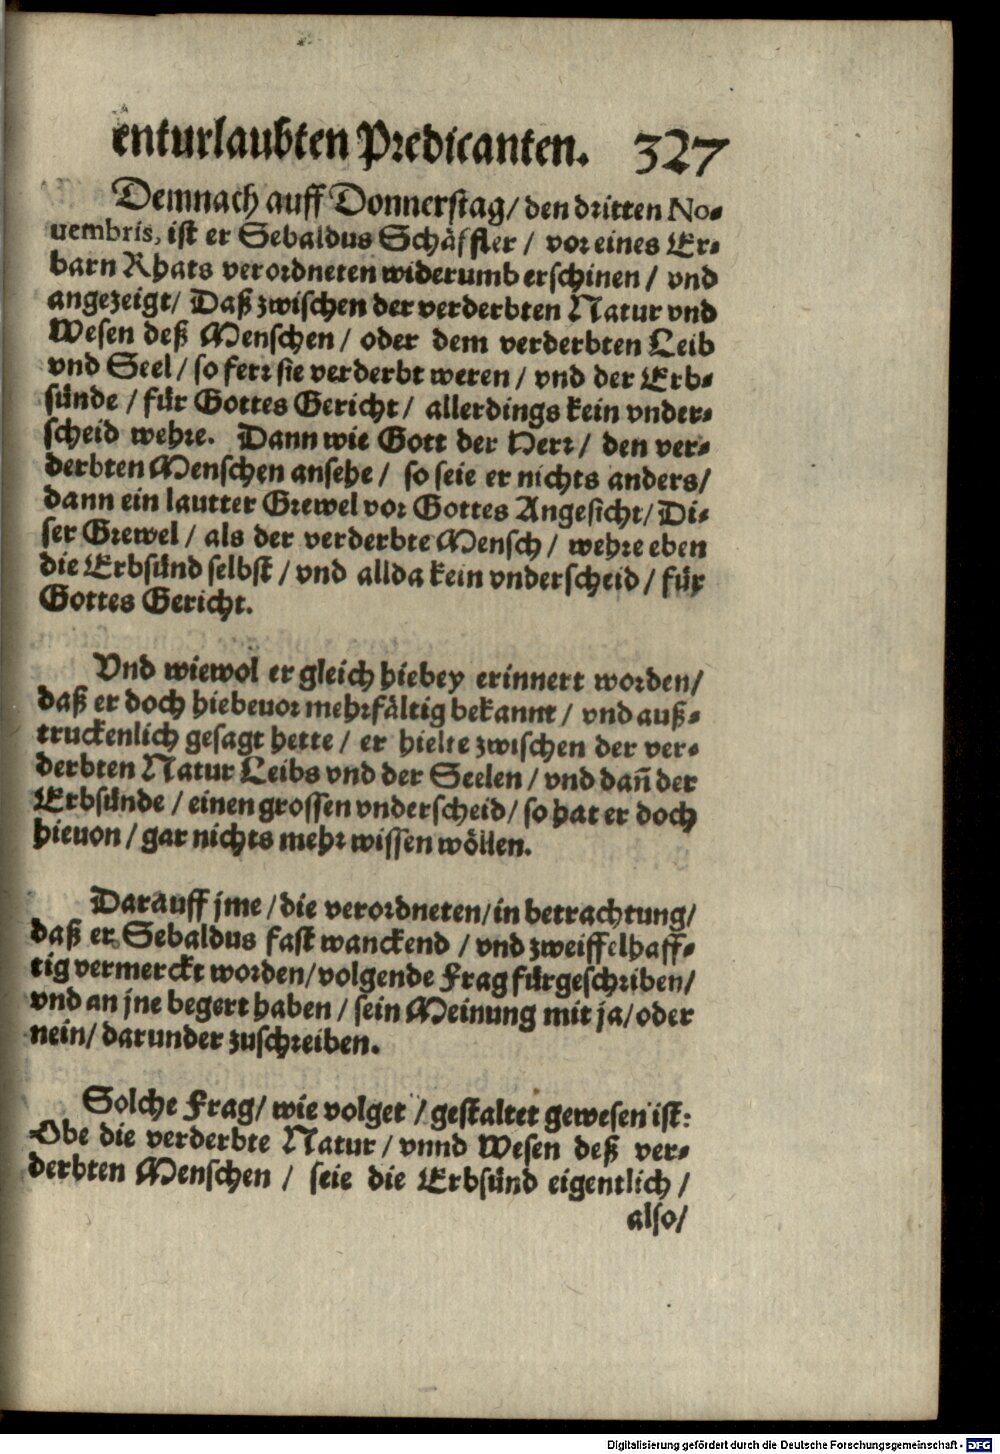 enturlaubten Predicanten. 327
Demnach auff Donnerstag/ den dritten No-
uembris, ist er Sebaldus Schäffler / vor eines Er-
barn Rhats verordneten widerumb erschinen / vnd
angezeigt/ Daß zwischen der verderbten Natur vnd
Wesen deß Menschen / oder dem verderbten Leib
vnd Seel / so ferr sie verderbt weren / vnd der Erb-
sünde / für Gottes Gericht / allerdings kein vnder-
scheid wehre. Dann wie Gott der Herr / den ver-
derbten Menschen ansehe / so seie er nichts anders/
dann ein lautter Grewel vor Gottes Angesicht/ Di-
ser Grewel / als der verderbte Mensch / wehre eben
die Erbsünd selbst / vnd allda kein vnderscheid / für
Gottes Gericht.
Vnd wiewol er gleich hiebey erinnert worden/
daß er doch hiebeuor mehrfältig bekannt / vnd auß-
truckenlich gesagt hette / er hielte zwischen der ver-
derbten Natur Leibs vnd der Seelen / vnd dañ der
Erbsünde / einen grossen vnderscheid / so hat er doch
hieuon / gar nichts mehr wissen wöllen.
Darauff jme / die verordneten/ in betrachtung/
daß er Sebaldus fast wanckend / vnd zweiffelhaff-
tig vermerckt worden/ volgende Frag fürgeschriben/
vnd an jne begert haben / sein Meinung mit ja/ oder
nein/ darunder zuschreiben.
Solche Frag/ wie volget / gestaltet gewesen ist:
Obe die verderbte Natur / vnnd Wesen deß ver-
derbten Menschen / seie die Erbsünd eigentlich /
also/
Digitalisierung gefördert durch die Deutsche Forschungsgemeinschaft - DFG